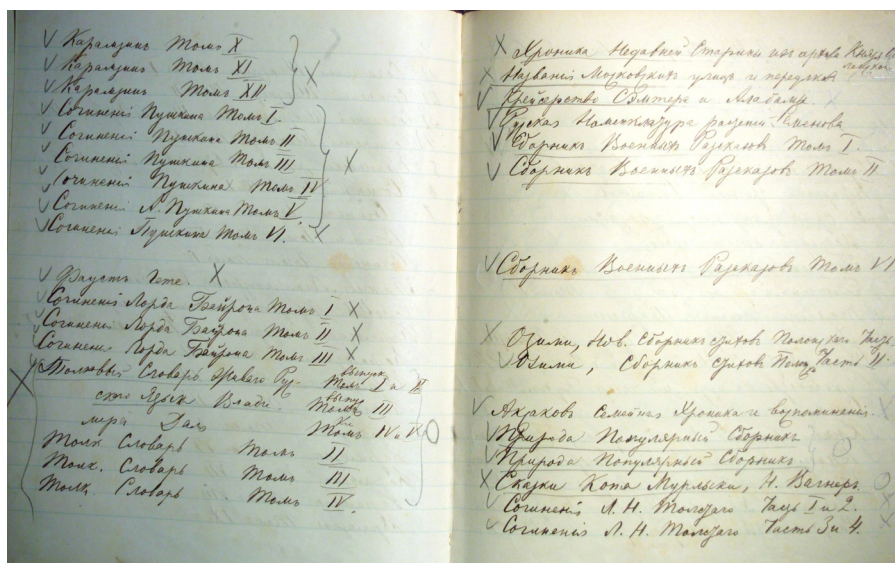 Карамзинъ Томъ X
Карамзинъ Томъ XI
Карамзинъ Томъ XII
Сочиненія Пушкина Томъ I.
Сочиненій Пушкина Томъ II
Сочиненій Пушкина Томъ III
Сочиненій Пушкина Томъ IV
Сочиненій А. Пушкина Томъ V.
Сочиненій Пушкина Томъ VI.
Фаустъ Гете.
Сочиненія Лорда Байрона Томъ I
Сочиненія Лорда Байрона Томъ II
Сочиненія Лорда Байрона Томъ III
Толковый Словарь Живаго Рус- выпуск Томъ I и II
Языка Влади- Томъ III
мера Даль Томъ IV и
Толк Словарь Томъ II
Толк. Словарь Томъ III
Толк. Словарь Томъ IV.
Хроника Недавней Старины изъ архива Князя
Названія Московскихъ улицъ и переулковъ
Крейсерство Сэмтера и Алабамы
Номенклатура Семенова
Сборникъ Военныхъ Разсказовъ Томъ I.
Сборникъ Военныхъ Разсказовъ Томъ II
Сборникъ Военныхъ Разсказовъ Томъ VI
Озими, Нов. Сборникъ стиховъ
Озими, Сборникъ стиховъ Часть II
Семейная Хроника и воспоминанія.
Природа Популярный Сборникъ
Природа Популярный Сборникъ.
Сказки Кота Мурлыки, Н. Вагнеръ
Сочиненія Л. Н. Толстаго Часть 1 и 2.
Сочиненія Л. Н. Толстаго Часть 3 и 4.